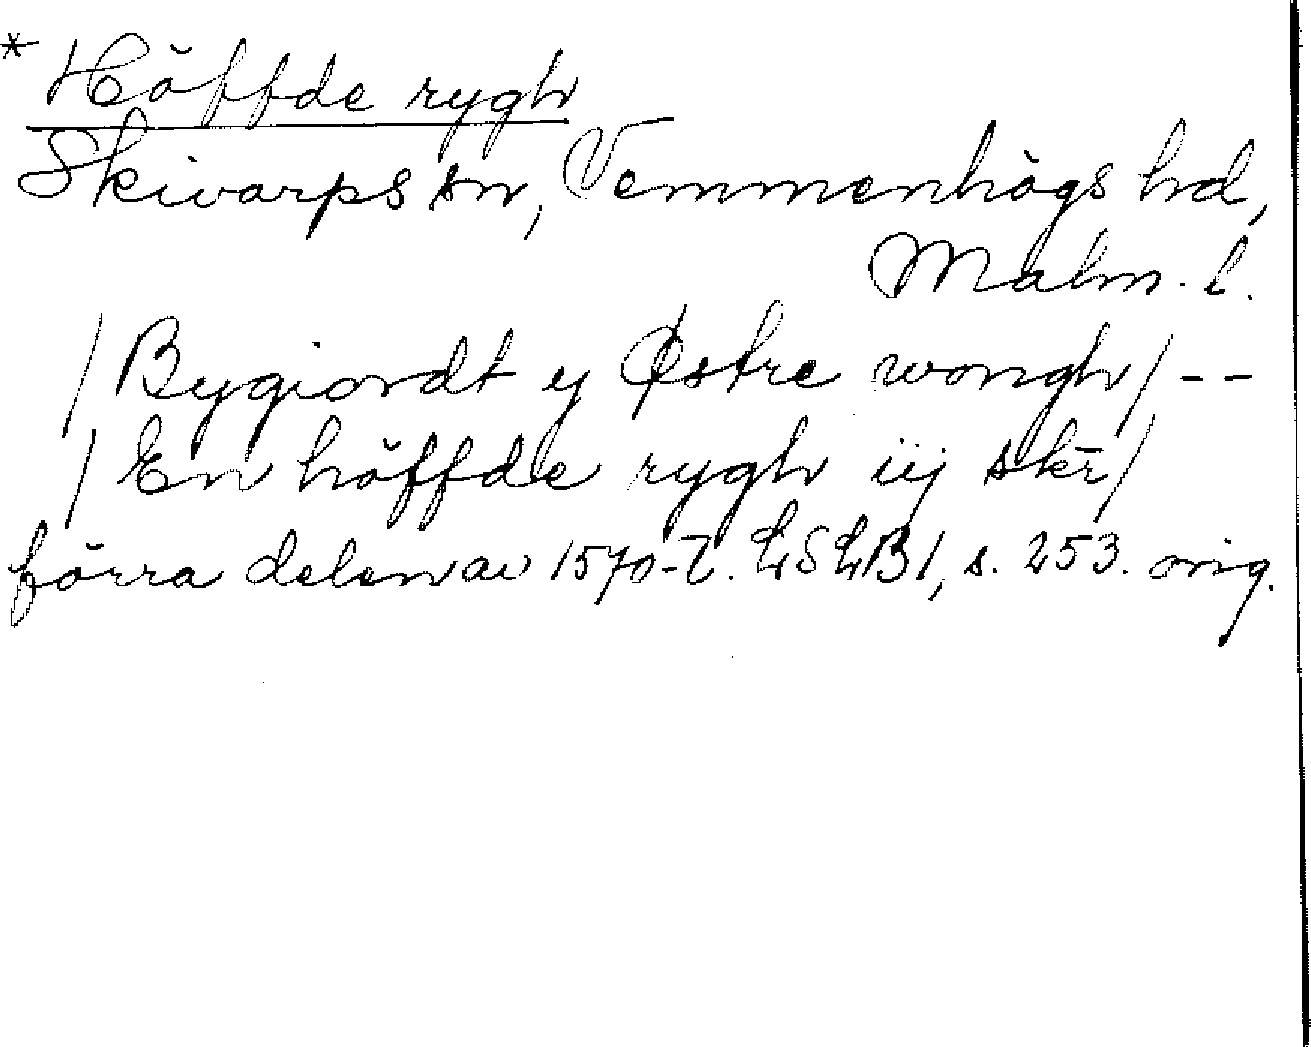 * Höffde rygh
Skivarps sn, Vemmenhögs hd,
Malm. l.
/Bygiordt y Østre wongh/--
/En höffde rygh iij skr/
förra delen av 1570-t. LSLB1, s. 253. orig.